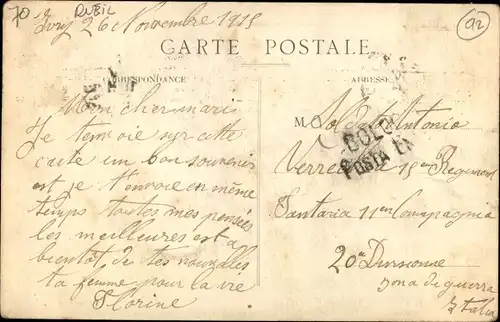 70
RUEIL
92
Ivry 26 Novembre 1915
CARTE POSTALE
CORRESPONDANCE
ADRESSE
Mon cher mari
Je t'envoie sur cette
carte un bon souvenir
est je t'envoie en même
temps toutes mes pensées
les meilleures est a
bientot de tes nouvelles
ta femme pour la vie
Florine
M. Antonio
BOLO
POSTA
15em Regiment
Fantaria 11em Compagnia
20a
zona di guerra
Italia